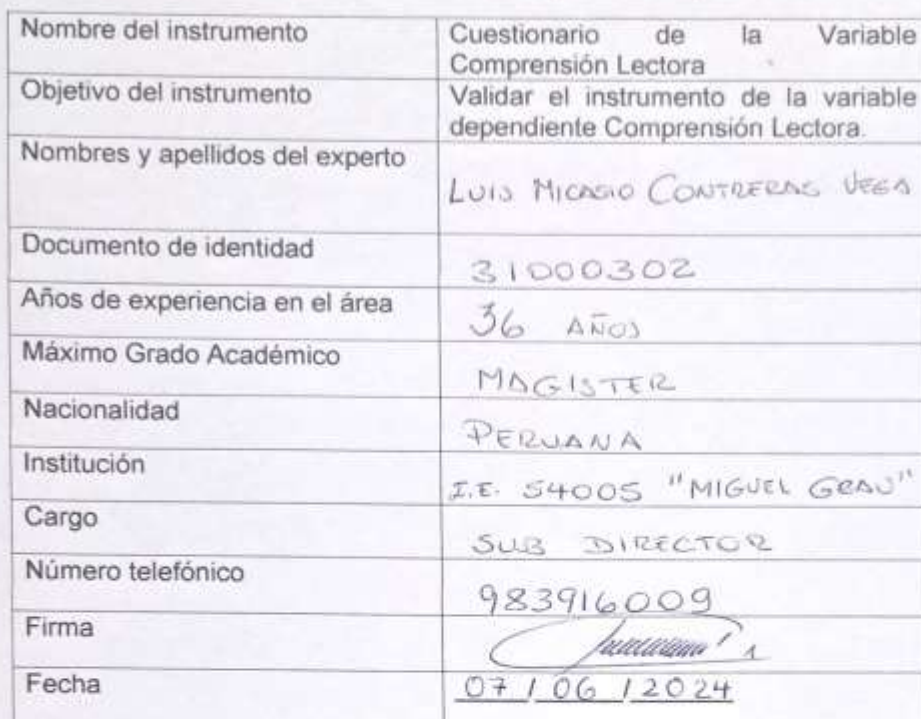 Nombre del instrumento
Cuestionario de la Variable
Comprensión Lectora
Objetivo del instrumento
Validar el instrumento de la variable
dependiente Comprensión Lectora.
Nombres y apellidos del experto
LUIS NICASIO CONTRERAS VEGA
Documento de identidad
31000302
Años de experiencia en el área
36 AÑOS
Máximo Grado Académico
MAGISTER
Nacionalidad
PERUANA
Institución
I.E. 54005 "MIGUEL GRAU"
Cargo
SUB DIRECTOR
Número telefónico
983916009
Firma
Fecha
07/06/2024